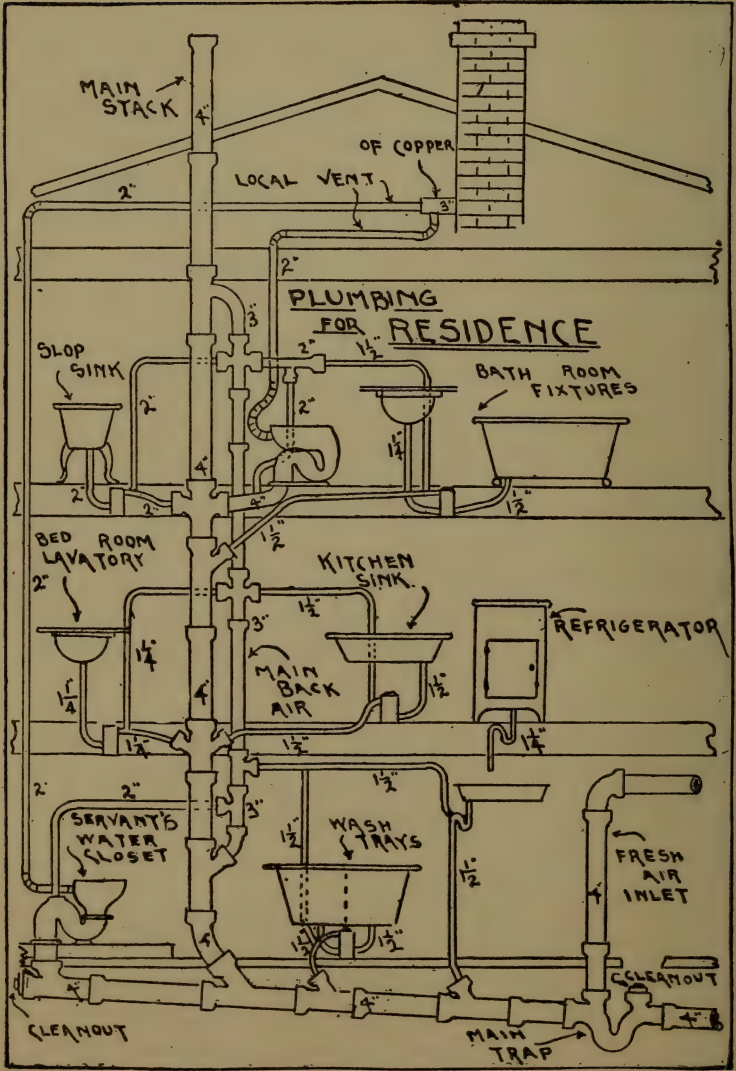 MAIN
STACK
4"
OF COPPER
LOCAL VENT
2"
3"
2"
PLUMBING
FOR RESIDENCE
3"
2"
1½"
SLOP
SINK
BATH ROOM
FIXTURES
2"
2"
1¼
4"
2"
2"
4"
1½"
1½"
BED ROOM
LAVATORY
KITCHEN
SINK
2"
1½"
REFRIGERATOR
3"
1¼
MAIN
BACK
AIR
1¼
4"
1½"
1¼"
1½"
1¼"
2"
2"
1½"
3"
SERVANT'S
WATER
CLOSET
1½"
WASH
TRAYS
1½"
FRESH
AIR
INLET
4"
4"
1½"
1½"
CLEANOUT
4"
4"
4"
CLEANOUT
MAIN
TRAP